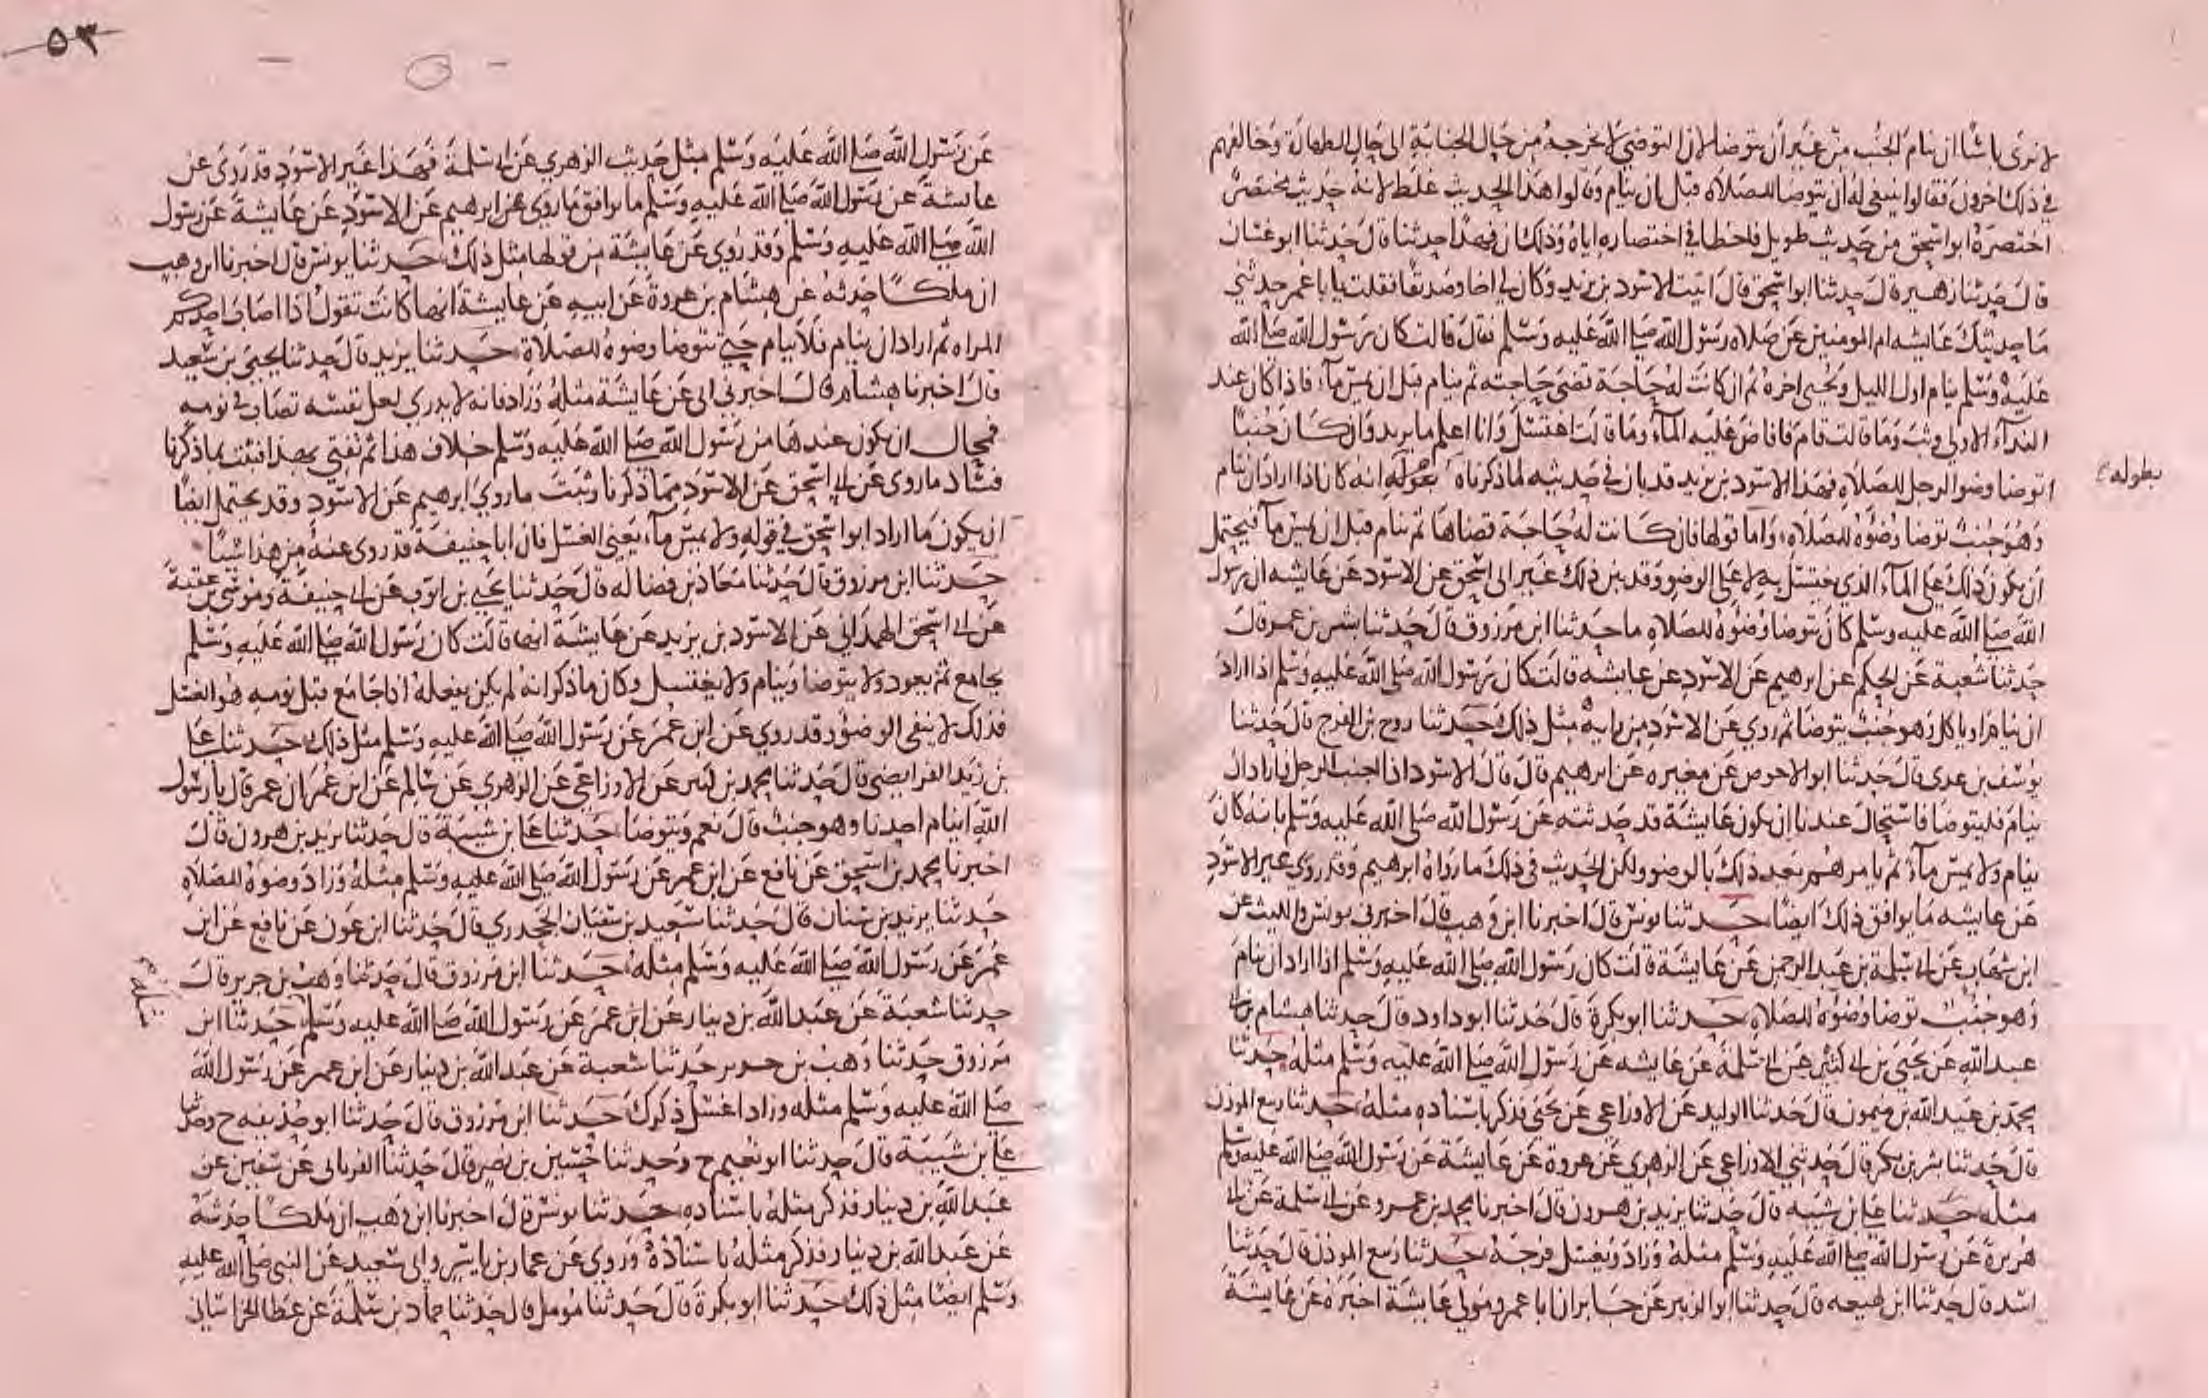 لا نرى باسا ان ينام الجنب من غير ان يتوضا لان التوضي لا يخرجه من حال الجنابة الى حال الطهارة وخالفهم
في ذلك اخرون فقالوا ينبغي له ان يتوضا للصلاة قبل ان ينام وقالوا هذا الحديث غلط لانه حديث مختصر
اختصره ابو اسحق من حديث طويل فاخطا في اختصاره اياه وذلك ان فهدا حدثنا قال حدثنا ابو غسان
قال حدثنا زهير قال حدثنا ابو اسحق قال اتيت الاسود بن يزيد وكان لي اخا وصديقا فقلت يا با عمر حدثني
ما حدثتك عايشه ام المومنين عن صلاة رسول الله صلى الله عليه وسلم فقال قالت كان رسول الله صلى الله
عليه وسلم ينام اول الليل ويحيي اخره ثم ان كانت له حاجة قضى حاجته ثم ينام قبل ان يمس ماء فاذا كان عند
النداء الاول وثب وما قالت قام فافاض عليه الماء وما قالت اغتسل وانا اعلم ما يريد وان كان جنبا
توضا وضو الرجل للصلاة فهذا الاسود بن يزيد قد بان في حديثه لما ذكرناه بطوله انه كان اذا اراد ان ينام
بطوله
وهو جنب توضا وضوه للصلاة واما قولها فان كانت له حاجة قضاها ثم ينام قبل ان يمس ماء فيحتمل
ان يكون ذلك على الماء الذي يغتسل به لا على الوضو وقد بين ذلك غير ابي اسحق عن الاسود عن عايشه ان رسول
الله صلى الله عليه وسلم كان يتوضا وضوه للصلاة ما حدثنا ابن مرزوق قال حدثنا بشر بن عمر قال
حدثنا شعبة عن الحكم عن ابرهيم عن الاسود عن عايشه قالت كان رسول الله صلى الله عليه وسلم اذا اراد
ان ينام او ياكل وهو جنب يتوضا ثم روي عن الاسود من رايه مثل ذلك حدثنا روح بن الفرج قال حدثنا
يوسف بن عدى قال حدثنا ابو الاحوص عن مغيره عن ابرهيم قال قال الاسود اذا اجنب الرجل فاراد ان
ينام فليتوضا فاستحال عندنا ان يكون عايشة قد حدثته عن رسول الله صلى الله عليه وسلم بانه كان
ينام ولا يمس ماء ثم يامرهم بعد ذلك بالوضو ولكن الحديث في ذلك ما رواه ابرهيم وقد روى غير الاسود
عن عايشه ما يوافق ذلك ايضا حدثنا يونس قال اخبرنا ابن وهب قال اخبرني يونس والليث عن
ابن شهاب عن ابي سلمة بن عبد الرحمن عن عايشة قالت كان رسول الله صلى الله عليه وسلم اذا اراد ان ينام
وهو جنب توضا وضوه للصلاة حدثنا ابو بكرة قال حدثنا ابو داود قال حدثنا هشام بن ابي
عبد الله عن يحيى بن ابي كثير عن ابي سلمة عن عايشه عن رسول الله صلى الله عليه وسلم مثله حدثنا
محمد بن عبد الله بن ميمون قال حدثنا الوليد عن الاوزاعي عن يحيى فذكر باسناده مثله حدثنا ربيع الموذن
قال حدثنا بشر بن بكر قال حدثني الاوزاعي عن الزهري عن عروة عن عايشة عن رسول الله صلى الله عليه وسلم
مثله حدثنا علي بن شيبه قال حدثنا يزيد بن هرون قال اخبرنا محمد بن عمرو عن ابي سلمة عن ابي
هريرة عن رسول الله صلى الله عليه وسلم مثله وزاد ويغسل فرجه حدثنا ربيع الموذن قال حدثنا
اسد قال حدثنا ابن لهيعه قال حدثنا ابو الزبير عن جابر ان ابا عمرو مولى عايشة اخبره عن عايشة
٥٣
عن رسول الله صلى الله عليه وسلم مثل حديث الزهري عن ابي سلمة فهذا غير الاسود قد روى عن
عايشة عن رسول الله صلى الله عليه وسلم ما يوافق ما روى عن ابرهيم عن الاسود عن عايشة عن رسول
الله صلى الله عليه وسلم وقد روي عن عايشة من قولها مثل ذلك حدثنا يونس قال اخبرنا ابن وهب
ان ملكا حدثه عن هشام بن عروة عن ابيه عن عايشة انها كانت تقول اذا اصاب احدكم
المراه ثم اراد ان ينام فلا ينام حتى يتوضا وضوه للصلاة حدثنا يزيد قال حدثنا يحيى بن سعيد
قال اخبرنا هشام قال اخبرني ابي عن عايشة مثله وزاد فانه لا يدري لعل نفسه تصاب في نومه
فمحال ان يكون عندها من رسول الله صلى الله عليه وسلم خلاف هذا ثم تفتي بهذا فثبت بما ذكرنا
فساد ما روى عن ابي اسحق عن الاسود مما ذكرنا وثبت ما روى ابرهيم عن الاسود وقد يحتمل ايضا
ان يكون ما اراد ابو اسحق في قوله ولا يمس ماء يعني الغسل فان ابا حنيفة قد روى عنه من هذا شيئا
حدثنا ابن مرزوق قال حدثنا معاذ بن فضاله قال حدثنا يحيى بن ايوب عن ابي حنيفة وموسى بن عقبة
عن ابي اسحق الهمداني عن الاسود بن يزيد عن عايشة انها قالت كان رسول الله صلى الله عليه وسلم
يجامع ثم يعود ولا يتوضا وينام ولا يغتسل وكان ما ذكر انه لم يكن يفعله اذا جامع قبل نومه هو الغسل
فذلك لا ينفي الوضو وقد روي عن ابن عمر عن رسول الله صلى الله عليه وسلم مثل ذلك حدثنا علي
بن زيد الفرايضي قال حدثنا محمد بن كثير عن الاوزاعي عن الزهري عن سالم عن ابن عمر ان عمر قال يا رسول
الله اينام احدنا وهو جنب قال نعم ويتوضا حدثنا علي بن شيبة قال حدثنا يزيد بن هرون قال
اخبرنا محمد بن اسحق عن نافع عن ابن عمر عن رسول الله صلى الله عليه وسلم مثله وزاد وضوه للصلاة
حدثنا يزيد بن سنان قال حدثنا سعيد بن سفيان الجحدري قال حدثنا ابن عون عن نافع عن ابن
عمر عن رسول الله صلى الله عليه وسلم مثله حدثنا ابن مرزوق قال حدثنا وهب بن جرير قال
حدثنا شعبة عن عبد الله بن دينار عن ابن عمر عن رسول الله صلى الله عليه وسلم حدثنا ابن
مرزوق حدثنا وهب بن جرير حدثنا شعبة عن عبد الله بن دينار عن ابن عمر عن رسول الله
صلى الله عليه وسلم مثله وزاد اغسل ذكرك حدثنا ابن مرزوق قال حدثنا ابو حذيفه ح وحدثنا
علي بن شيبة قال حدثنا ابو نعيم ح وحدثنا حسين بن نصر قال حدثنا الفريابي عن سفين عن
عبد الله بن دينار فذكر مثله باسناده حدثنا يونس قال اخبرنا ابن وهب ان ملكا حدثه
عن عبد الله بن دينار فذكر مثله باسناده وروى عن عمار بن ياسر وابي سعيد عن النبي صلى الله عليه
وسلم ايضا مثل ذلك حدثنا ابو بكرة قال حدثنا مومل قال حدثنا حماد بن سلمة عن عطا الخراساني